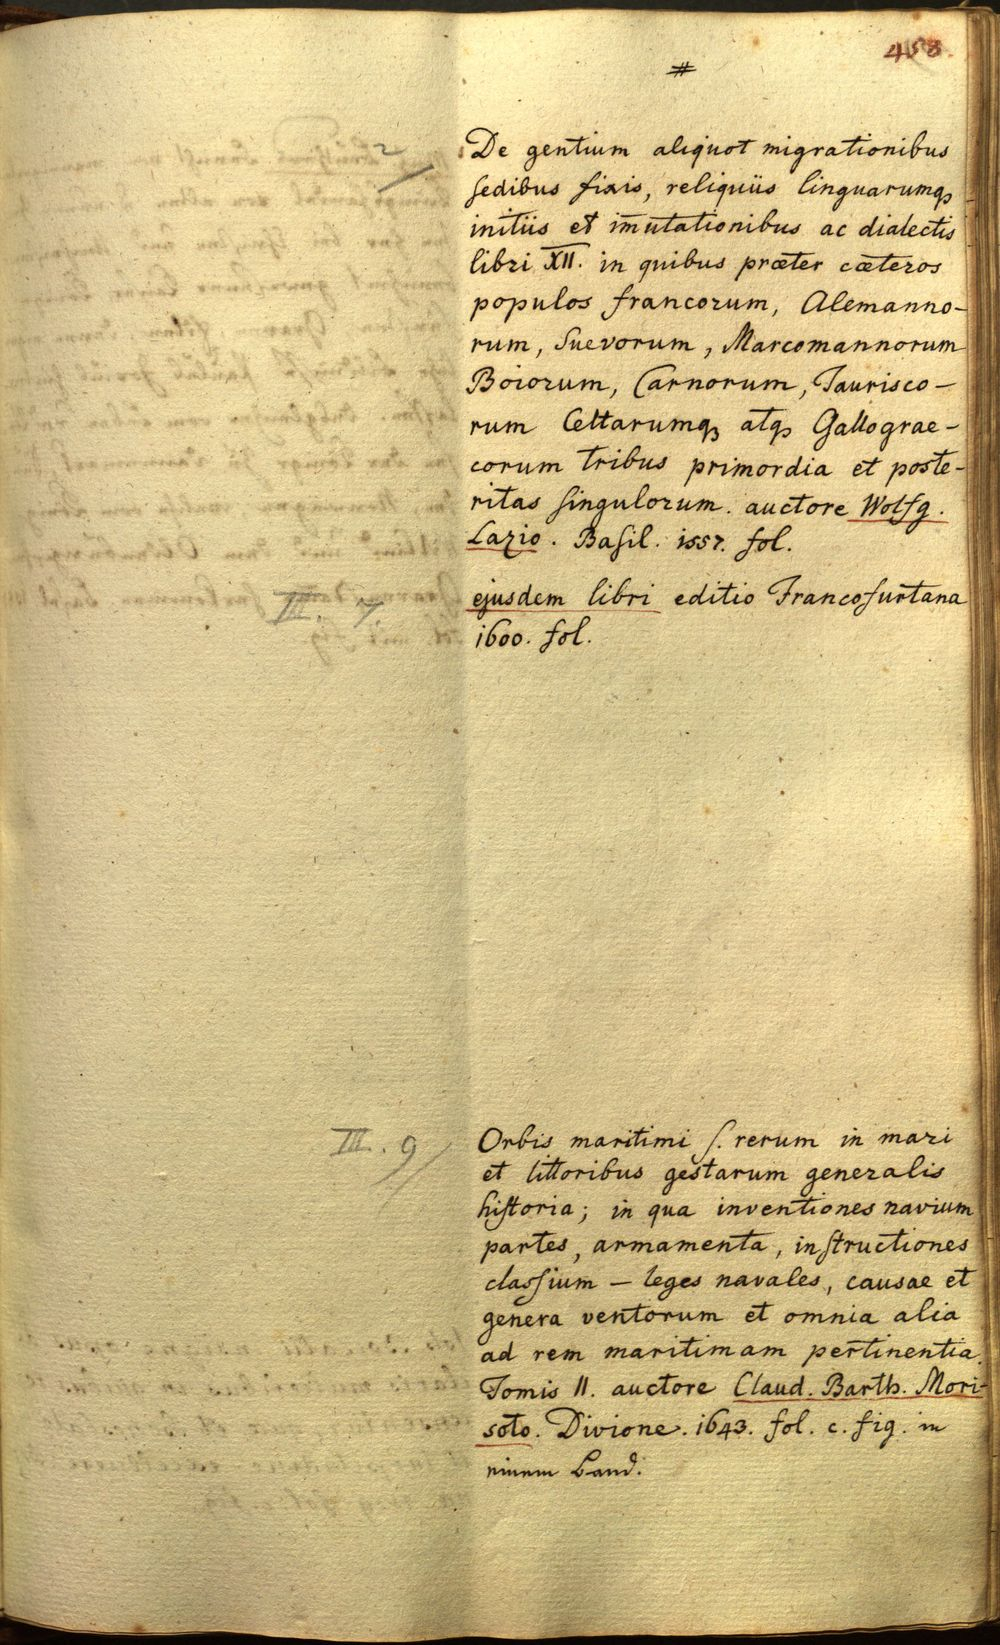 453
#
2
De gentium aliquot migrationibus
sedibus fixis, reliquiis linguarumq꜄
initiis et im̄utationibus ac dialectis
libri XII. in quibus præter cæteros
populos francorum, Alemanno-
rum, Suevorum, Marcomannorum
Boiorum, Carnorum, Taurisco-
rum Celtarumq꜄ atq꜄ Gallograe-
corum tribus primordia et poste-
ritas singulorum. auctore Wolfg.
Lazio. Basil. 1557. fol.
III. 7.
ejusdem libri editio Francofurtana
1600. fol.
III. 9
Orbis maritimi s. rerum in mari
et littoribus gestarum generalis
historia; in qua inventiones navium
partes, armamenta, instructiones
classium – leges navales, causae et
genera ventorum et omnia alia
ad rem maritimam pertinentia.
Tomis II. auctore Claud. Barth. Mori-
soto. Divione. 1643. fol. c. fig. in
einem Band.